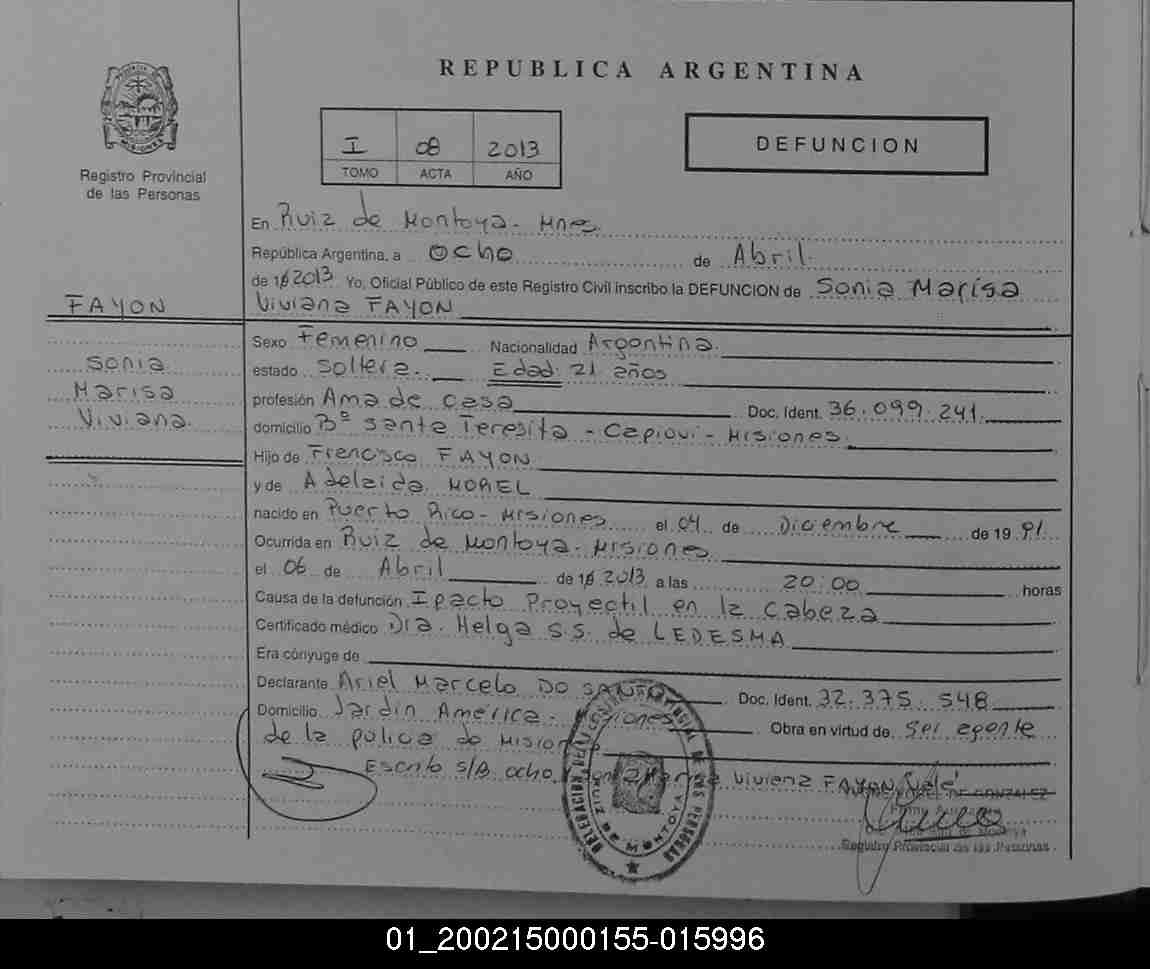 REPUBLICA ARGENTINA
MISIONES
Registro Provincial
de las Personas
I 08 2013
TOMO ACTA AÑO
DEFUNCION
En Ruiz de Montoya - Mnes.
República Argentina, a ocho de Abril.
de 19 2013 Yo, Oficial Público de este Registro Civil inscribo la DEFUNCION de Sonia Marisa
Viviana FAYON
FAYON
Sonia
Marisa
Viviana
Sexo Femenino Nacionalidad Argentina.
estado Soltera. Edad: 21 años
profesión Ama de casa Doc. Ident. 36.099.241.
domicilio Bº Santa Teresita - Capiovi - Misiones.
Hijo de Francisco FAYON
y de Adelaida MOREL
nacido en Puerto Rico - Misiones el 04 de Diciembre de 19 91.
Ocurrida en Ruiz de Montoya - Misiones
el 06 de Abril de 19 2013 a las 20:00 horas
Causa de la defunción Ipacto Proyectil en la Cabeza
Certificado médico Dra. Helga S.S. de LEDESMA
Era cónyuge de
Declarante Ariel Marcelo DO SANTO Doc. Ident. 32.375.548
Domicilio Jardin América - Misiones Obra en virtud de ser agente
de la policia de Misiones
Escrito S/B ocho Viviana FAYON Vale
DELEGACION DEL REGISTRO PROVINCIAL DE LAS PERSONAS
RUIZ DE MONTOYA
DE GONZALEZ
Registro Provincial de las Personas
01_200215000155-015996